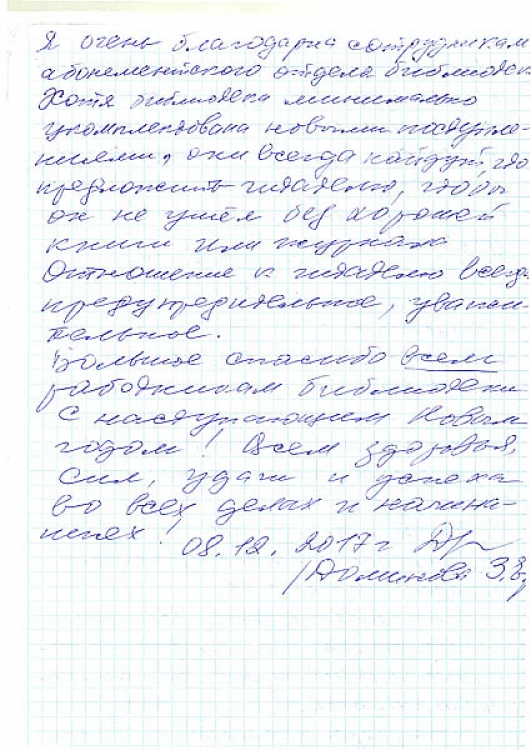 Я очень благодарна сотрудникам
абонементского отдела библиотеки
Хотя библиотека минимально
укомплектована новыми поступле-
ниями, они всегда найдут, что
предложить читателю, чтобы
он не ушёл без хорошей
книги или журнала
Отношение к читателю всегда
предупредительное, уважи-
тельное.
Большое спасибо всем
работникам библиотеки
С наступающим Новым
годом! Всем здоровья,
сил, удачи и успеха
во всех делах и начина-
ниях!
08.12.2017 г